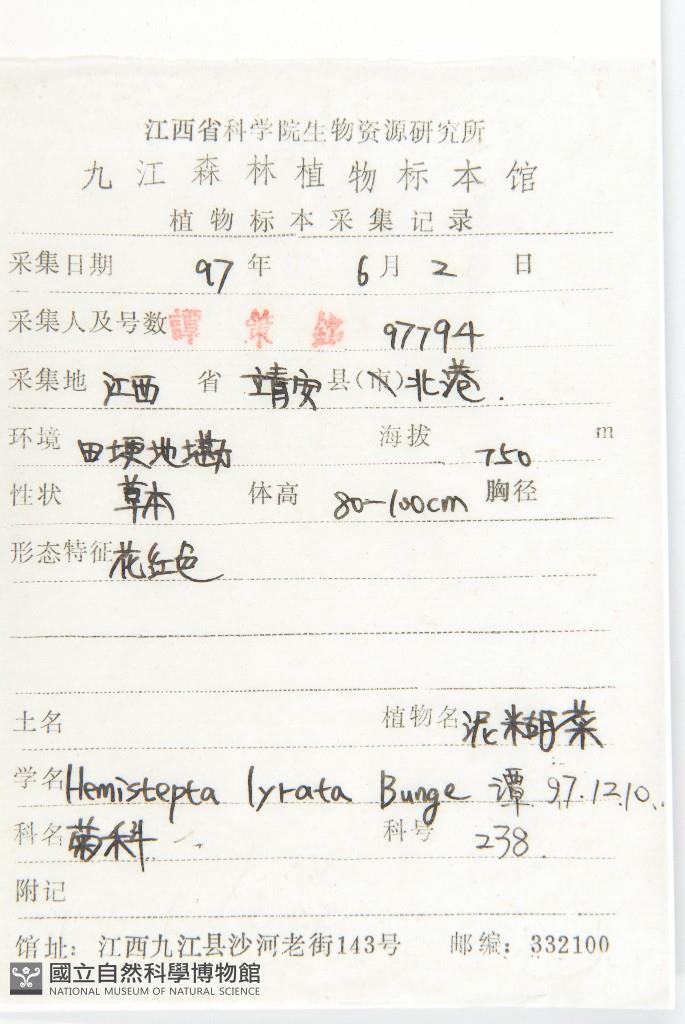 江西省科学院生物资源研究所
九江森林植物标本馆
植物标本采集记录
采集日期 97 年 6 月 2 日
采集人及号数 譚策銘 97794
采集地 江西 省 靖安 县(市) 北港.
环境 田埂地塝 海拔 750 m
性状 草本 体高 80-100cm 胸径
形态特征 花红色
土名 植物名 泥糊菜
学名 Hemistepta lyrata Bunge 譚 97.12.10.
科名 菊科 科号 238
附记
馆址: 江西九江县沙河老街143号 邮编: 332100
國立自然科學博物館
NATIONAL MUSEUM OF NATURAL SCIENCE